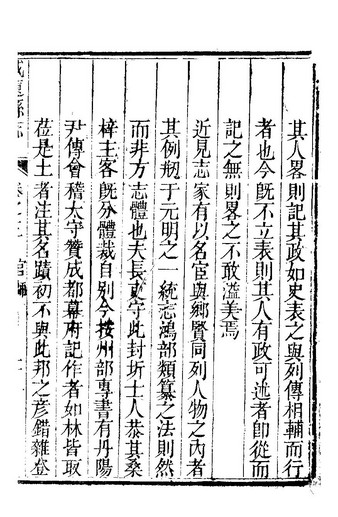 其人畧則記其政如史表之與列傳相輔而行
者也今既不立表則其人有政可述者卽從而
記之無則畧之不敢溢美焉
近見志家有以名宦與鄉賢同列人物之內者
其例㓝于元明之一統志鴻部類纂之法則然
而非方志體也夫長吏守此封圻士人恭其桑
梓主客既分體裁自別今按州部專書有丹陽
尹傳會稽太守贊成都幕府記作者如林皆取
莅是土者注其名蹟初不與此邦之彥錯雜登
縣志
卷之